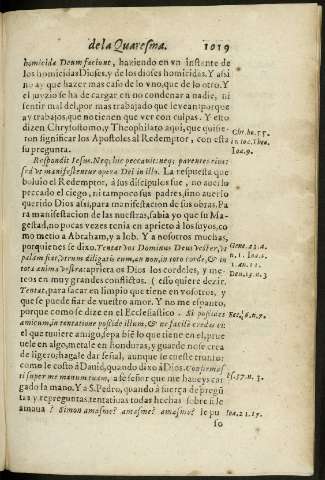 de la Quaresma. 1019
homicida Deum faciunt, haziendo en vn instante de
los homicidas Dioses, y de los dioses homicidas. Y assi
no ay que hazer mas caso de lo vno, que de lo otro. Y
el juyzio se ha de cargar en no condenar a nadie, ni
sentir mal del, por mas trabajado que le vean: porque
ay trabajos, que no tienen que ver con culpas. Y esto
dizen Chrysostomo, y Theophilato aqui, que quisie-
ron significar los Apostoles al Redemptor, con esta
su pregunta.
Chr. ho. 55.
in Ioc. Theo.
Ioa. 9.
Respondit Iesus. Neq; hic peccauit: neq; parentes eius:
sed vt manifestentur opera Dei in illo. La respuesta que
boluio el Redemptor, à sus discipulos fue, no auer lo
peccado el ciego, ni tampoco sus padres, sino auer lo
querido Dios assi, para manifestacion de sus obras. Pa
ra manifestacion de las nuestras, sabia yo que su Ma-
gestad, no pocas vezes tenia en aprieto à los suyos, co
mo metio a Abraham, y a Iob. Y a nosotros muchas,
por quienes se dixo. Tentat vos Dominus Deus vester, vt
palam fiat, vtrum diligatis eum, an non, in toto corde, & in
tota anima vestra: aprieta os Dios los cordeles, y me-
te os en muy grandes conflictos. (esso quiere dezir,
Tentat, para sacar en limpio que tiene en vosotros, y
que se puede fiar de vuestro amor. Y no me espanto,
porque como se dize en el Ecclesiastico. Si possides
amicum, in tentatione posside illum, & ne facile credas ei:
el que tuuiere amigo, sepa biẽ lo que tiene en el, prue
uele en algo, metale en honduras, y guarde no se crea
de ligero, haga le dar señal, aunque le cueste triunfo:
como le costò à Dauid, quando dixo à Dios.
gado la mano. Y a S. Pedro, quando à fuerça de pregũ
tas y repreguntas, tentatiuas todas hechas sobre si le
amaua? Simon amas me? amas me? amas me? le pu
so
Gene. 22. a.
n. 1.
Deu. 13. n. 3.
Eccl. 6. n. 7.
Ioa. 21. 15.